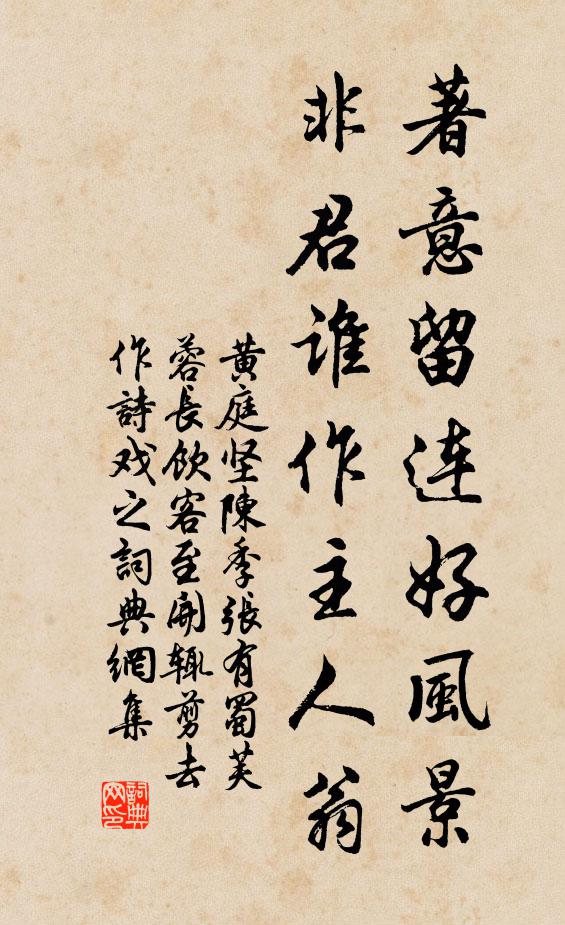 著意留连好風景
非君谁作主人翁
黄庭坚陳季張有蜀芙
蓉長飲客至開輒剪去
作詩戏之詞典網集
詞典
网印